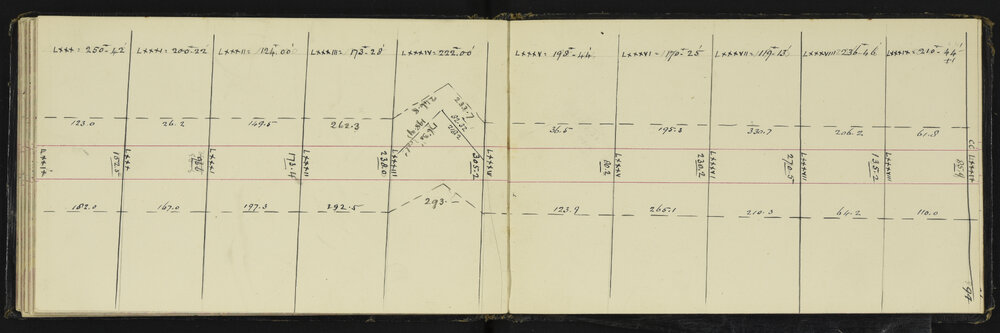 LXXX = 250-42 LXXXI = 200-22 LXXXII = 124.00' LXXXIII = 173-28' LXXXIV = 222.00'
LXXXV = 198-44' LXXXVI = 170-25' LXXXVII = 119-13' LXXXVIII = 236-46 LXXXIX = 210-44'
244.8
233.7
123.0 26.2 149.5 262.3
36.5 195.8 330.7 206.2 61.8
LXXIX
152.5 LXXX
LXXXI
173.4 LXXXII
238.0 LXXXIII
305.2 LXXXIV
80.2 LXXXV
230.2 LXXXVI
270.5 LXXXVII
135.2 LXXXVIII
85.9 CC LXXXIX
182.0 167.0 197.3 292.5 293.
123.9 265.1 210.3 64.2 110.0